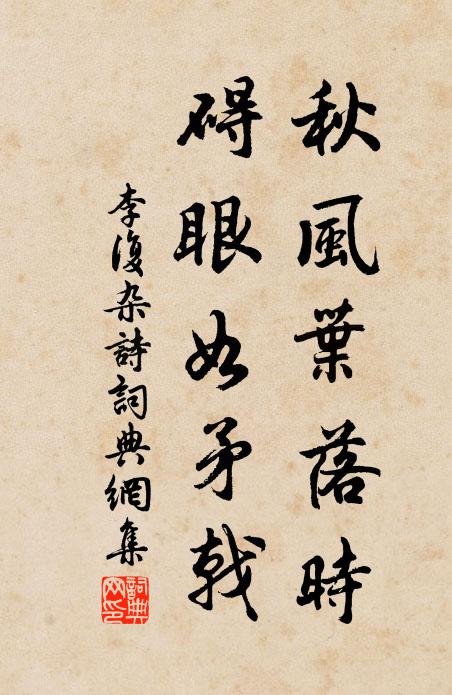 秋風葉落時
碍眼如矛戟
李復杂詩詞典網集
詞典网印